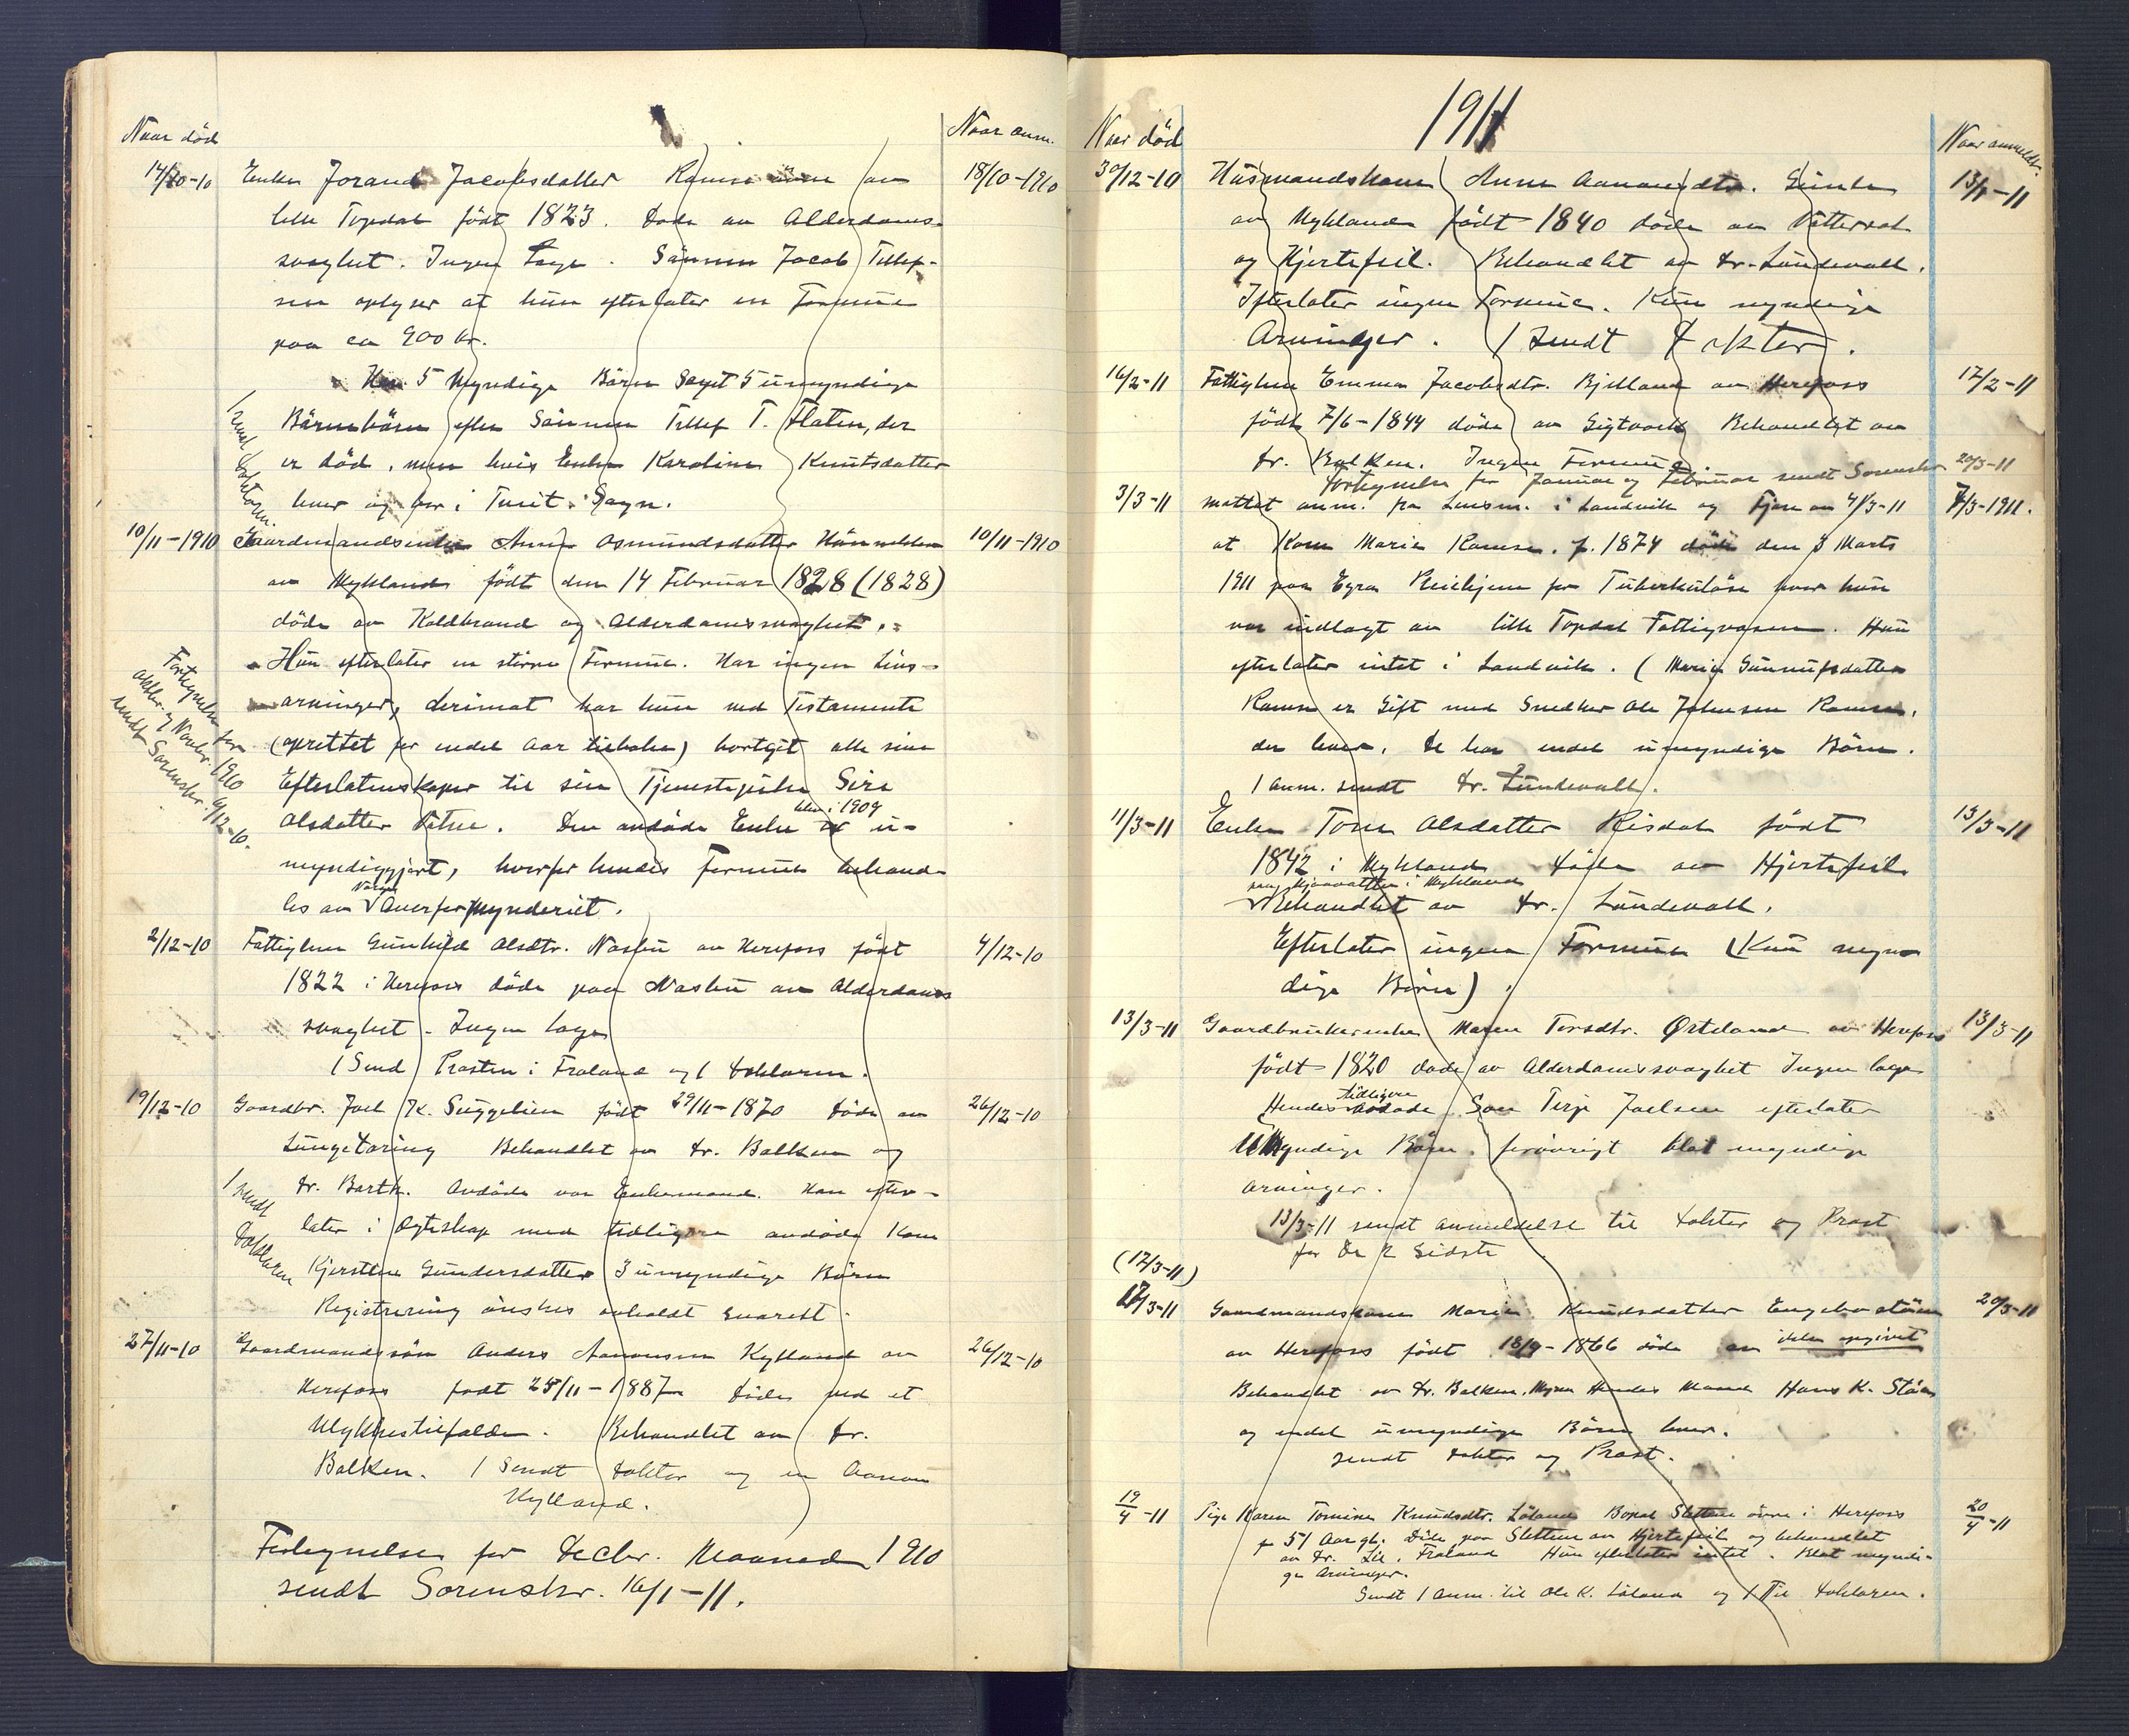 Naar død
Naar anm.
14/10-10 Enken Jorand Jacobsdatter Ramse øvre av 18/10-1910
lille Topdal født 1823. Døde av Alderdoms-
svaghet. Ingen Læge. Sønnen Jacob Tellef-
sen oplyser at hun efterlater en Formue
paa ca 900 kr.
Har 5 Myndige Børn Samt 5 umyndige
Barnebørn efter Sønnen Tellef T. Flaten, der
er død, men hvis Enke Karoline Knutsdatter
lever og bor i Tveit Sogn.
1 sendt Doktoren.
10/11-1910 Gaardmandsenke Anne Osmundsdatter 10/11-1910
av Mykland født den 14 Februar 1828 (1828)
døde av Koldbrand og Alderdomssvaghet.
Hun efterlater en større Formue. Har ingen Livs-
arvinger, derimot har hun ved Testamente
(oprettet for endel Aar tilbake) bortgit alle sine
Efterlatenskaper til sin Tjenestepike Siri
Olsdatter Vatne. Den avdøde Enke blev i 1909 u-
myndiggjort, hvorfor hendes formue behand-
les av Overformynderiet.
Fortegnelse for
oktbr. og Novbr. 1910
sendt Sorenskr. 9/12-10.
2/12-10 Fattiglem Gunhild Olsdtr. Naslu av Herefoss født 4/12-10
1822 i Herefoss døde paa Naslu av Alderdoms
svaghet. Ingen læge
1 Send Presten i Froland og 1 Doktoren.
19/12-10 Gaardbr. Joel K. født 29/11-1870 Døde av 26/12-10
Lungetæring Behandlet av Dr. Balken og
Dr. Barth. Avdøde var Enkemand. Han efter-
later i Egteskap med tidligere avdøde Kone
Kjerstine Gundersdatter 3 umyndige Børn
Registrering ønskes avholdt snarest.
1 sendt
Doktoren
27/11-10 Gaardmandssøn Anders Aanonsen Kylland av 26/12-10
Herefoss født 25/11-1887 Døde ved et
Ulykkestilfælde. Behandlet av Dr.
Balken. 1 Sendt Doktor og en Aanon
Kylland.
Fortegnelse for Decbr. Maaned 1910
sendt Sorenskr. 16/1-11.
1911
Naar død
Naar anmeldt.
30/12-10 Husmandskone Anne Aanonsdtr. 13/1-11
av Mykland født 1840 døde av Vattersot
og Hjertefeil. Behandlet av Dr. Lundevall.
Efterlater ingen Formue. Kun myndige
Arvinger. 1 sendt Dokter.
16/2-11 Fattiglem Emma Jacobsdtr. Bjelland av Herefoss 17/2-11
født 7/6-1844 døde av Behandlet av
Dr. Balken. Ingen Formue
Fortegnelse for Januar og Februar sendt Sorenskr 20/3-11
3/3-11 mottat anm. fra Lensm. i Landvik og Fjære av 4/3-11 7/3-1911.
at Kone Marie Ramse. f. 1874 døde den 3 Marts
1911 paa Egra Pleiehjem for Tuberkuløse hvor hun
var indlagt av lille Topdal Fattigvæsen. Hun
efterlater intet i Landvik. (Marie Gunnufsdatter
Ramse er Gift med Snedker Ole Johnsen Ramse,
der lever. De har endel umyndige Børn.
1 anm. sendt Dr. Lundevall.
11/3-11 Enke Tone Olsdatter Risdal født 13/3-11
1842 i Mykland Døde av Hjertefeil
i Mykland
Behandlet av Dr. Lundevall.
Efterlater ingen Formue (Kun myn-
dige Børn).
13/3-11 Gaardbrukerenke Maren Torsdtr. av Herefoss 13/3-11
født 1820 døde av Alderdomssvaghet Ingen læge
Hendes tidligere avdøde Søn Terje Joelsen efterlater
Umyndige Børn. forøvrigt blot myndige
arvinger.
13/3-11 sendt anmeldelse til Dokter og Prest
for De 2 Sidste
(17/3-11)
17/3-11 Gaardmandskone Marie Knudsdatter Engebostøen 20/3-11
av Herefoss født 18/9-1866 døde av ikke opgivet
Behandlet av Dr. Balken. Hendes Mand Hans K. Støen
og endel umyndige Børn lever.
sendt Dokter og Prest.
19/4-11 Pige Karen Tomine Knudsdtr. Løland Bopæl Slettene øvre i Herefoss 20/4-11
f 51 Aar gl. Døde paa Slettene av Hjertefeil og behandlet
av Dr. Lie, Froland Hun efterlater intet. Blot myndi-
ge Arvinger.
Sendt 1 Anm. til Ole K. Løland og 1 Til Doktoren.